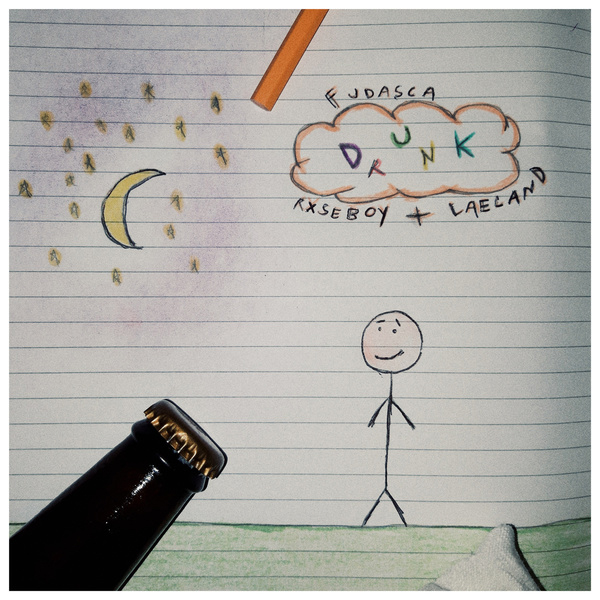 FUDASCA
DRUNK
RXSEBOY + LAELAND